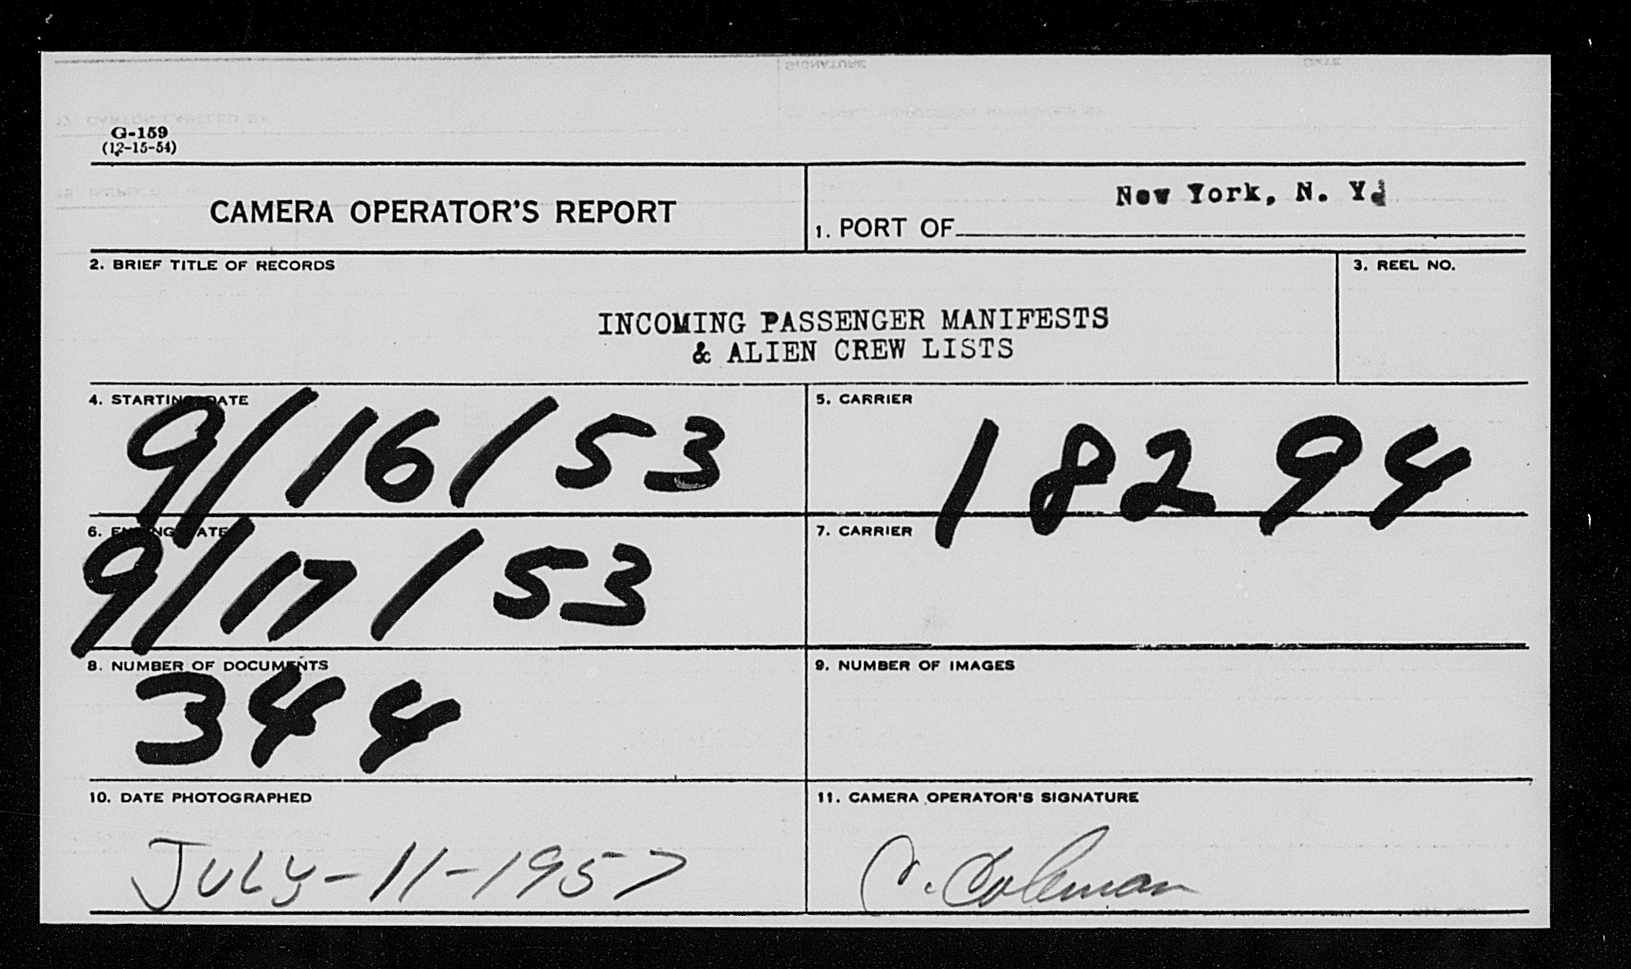 G-159
(12-15-54)
CAMERA OPERATOR'S REPORT
1. PORT OF New York, N. Y.
2. BRIEF TITLE OF RECORDS
INCOMING PASSENGER MANIFESTS
& ALIEN CREW LISTS
3. REEL NO.
4. STARTING DATE
9/16/53
5. CARRIER
18294
6. ENDING DATE
9/17/53
7. CARRIER
8. NUMBER OF DOCUMENTS
344
9. NUMBER OF IMAGES
10. DATE PHOTOGRAPHED
JULY-11-1957
11. CAMERA OPERATOR'S SIGNATURE
Coleman